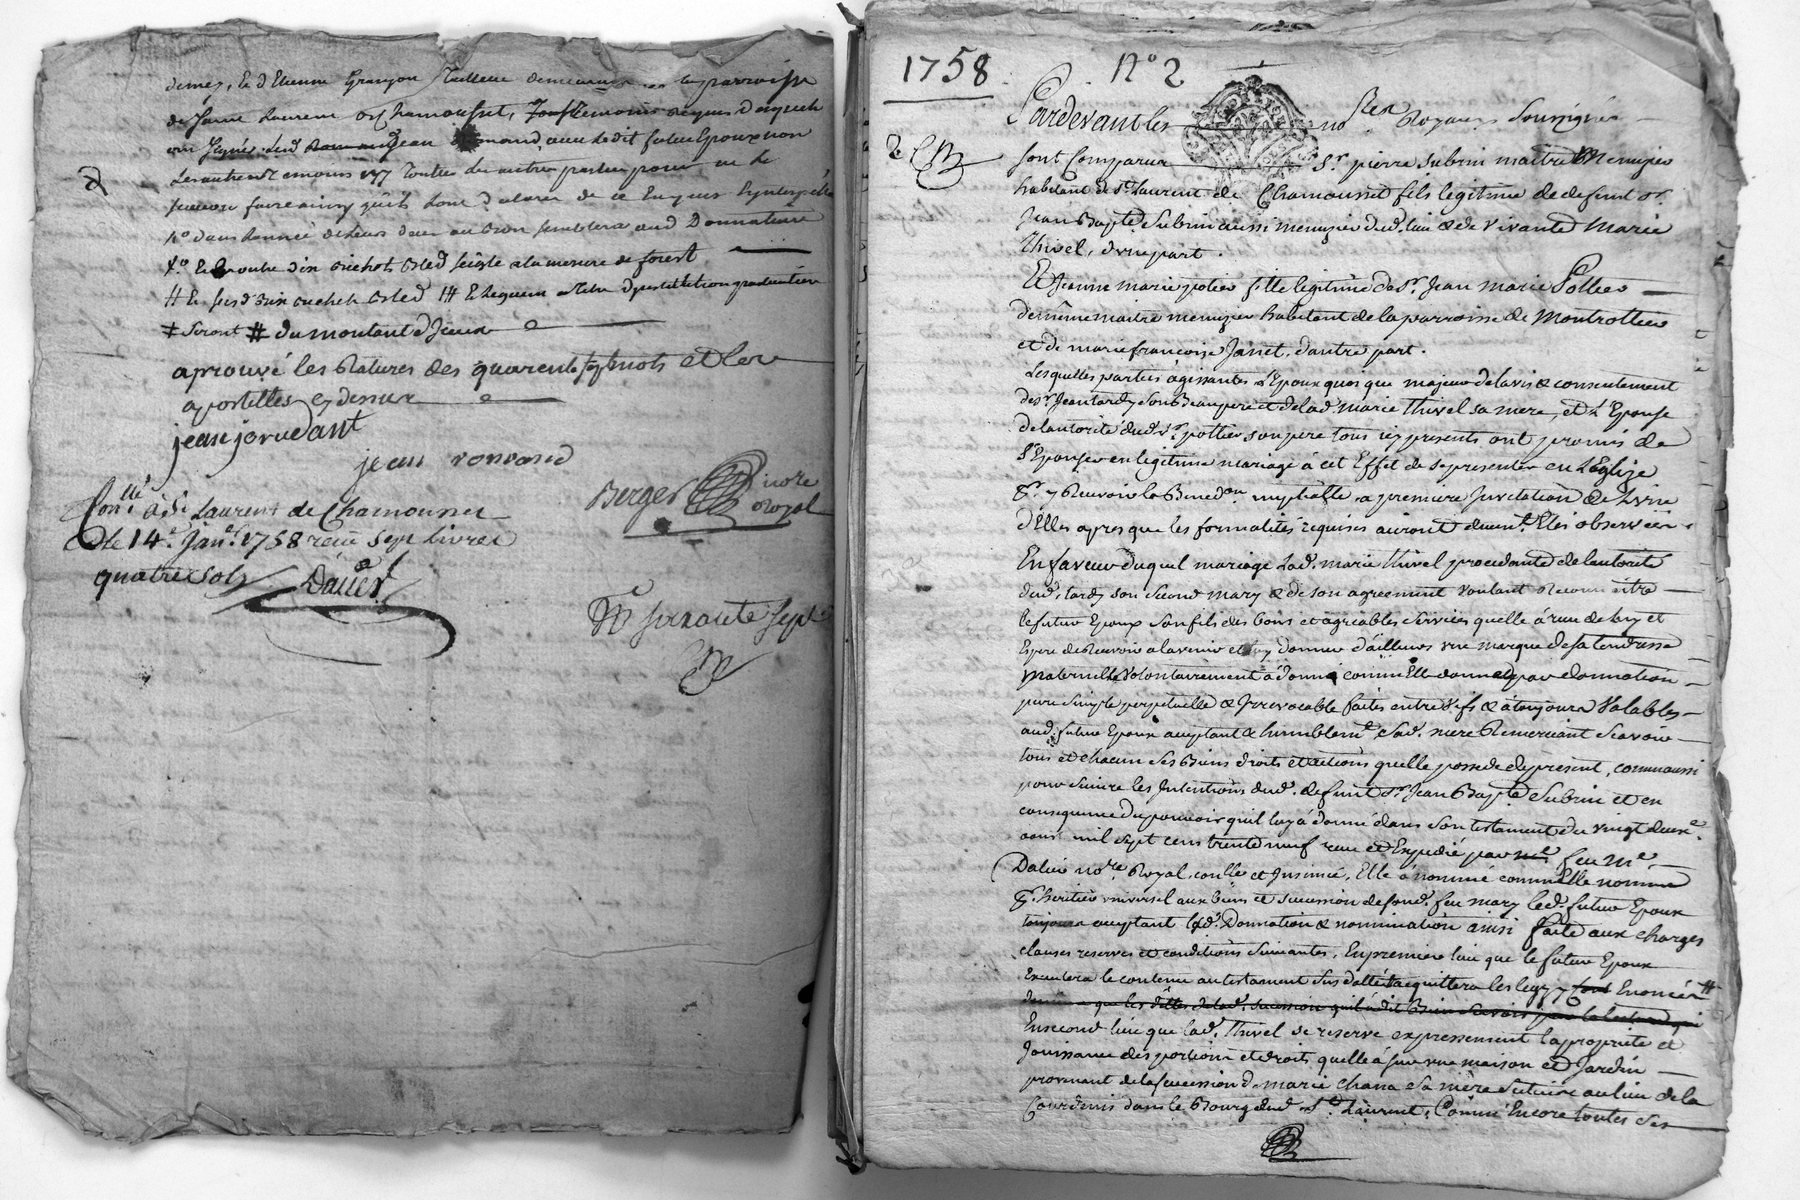 demeu, led Etienne Grançon Tailleur demeurant en la parroisse
de Saint Laurent de Chamousset, Tous temoins requis
signés led Jean Romand avec ledit futur Epoux non
Les autres temoins ny toutes les autres parties pour ne le
scavoir faire ainsy quils l'ont déclaré de ce Enquis
Xo Et En outre dix bichets bled seigle a la mesure de forest
# du montant d'Iceux
aprouvé les Ratures des quarente sept mots et les
apostilles cy dessus
jean jo
jean romand
Berger nore
Royal
Conllé à St Laurent de Chamousset
le 14e Janer 1758 reçu Sept livres
quatre sols
Dalier
soixante sept
1758 No 2
Pardevant les nores Royaux Soussignés
sont Comparus Sr pierre Subrin maitre Menuisier
habitant de St Laurent de Chamousset fils legitime de defunt Sr
Jean Bapte Subrin aussi menuisier dud. lieu & de vivante Marie
Thivel, d'une part.
Et Jeanne marie potier fille legitime de Sr. Jean marie Pottier
de même maitre menuisier habitant de la parroisse de Montrottier
et de marie françoise Janet, d'autre part.
Lesquelles parties agissantes L'Epoux quoi que majeur de l'avis & consentement
de Sr Jean tardy Son Beaupere et de lad. marie Thivel sa mere, et L'Epouse
de l'autorité dud. Sr. pottier son pere tous icy presents ont promis de
S'Epouser en legitime mariage à cet Effet de se presenter en L'Eglise
pr. y Recevoir la Benedon nuptialle a premiere Invitation de L'une
d'Elles apres que les formalités requises auront duemt. Etés observées.
En faveur duquel mariage Lad. marie thivel procedante de l'autorité
dud. tardy son second mary & de son agreement voulant Reconnoitre
le futur Epoux son fils des bons et agréables services quelle à reçu de luy et
Espere de Recevoir a lavenir et luy donner d'ailleurs une marque de sa tendresse
maternelle volontairement à donné comme Elle donne par donnation
pure simple perpetuelle & Irrevocable faites entre vifs & à toujours Valables
aud. futur Epoux acceptant & humblemt. Sad. mere Remerciant Scavoir
tous et chacun ses Biens droits et actions quelle possede de present, comme aussi
pour suivre les Intentions dud. defunt Sr. Jean Bapte Subrin et en
consequence du pouvoir qu'il luy à donné dans son testament du vingt deuxe.
aoust mil sept cens trente neuf recu et Expedié par feu Me
Dalier nore Royal, conllé et Insinué, Elle a nommé comme Elle nomme
pr. heritier universel aux biens et succession de son d. feu mary led. futur Epoux
toujours acceptant lad. Donnation & nomination ainsi faite aux charges
clauses reserves et conditions suivantes, En premier lieu que le futur Epoux
Executera le contenu au testament sus datté acquittera les legs y Enoncés #
En second lieu que lad. Thivel se reserve expressement la proprieté et
Jouissance des portions et droits quelle à sur une maison et Jardin
provenant de la succession d. marie chana sa mère Scituée au lieu de la
dans le Bourg dud. St. Laurent, Comme Encore toutes ses